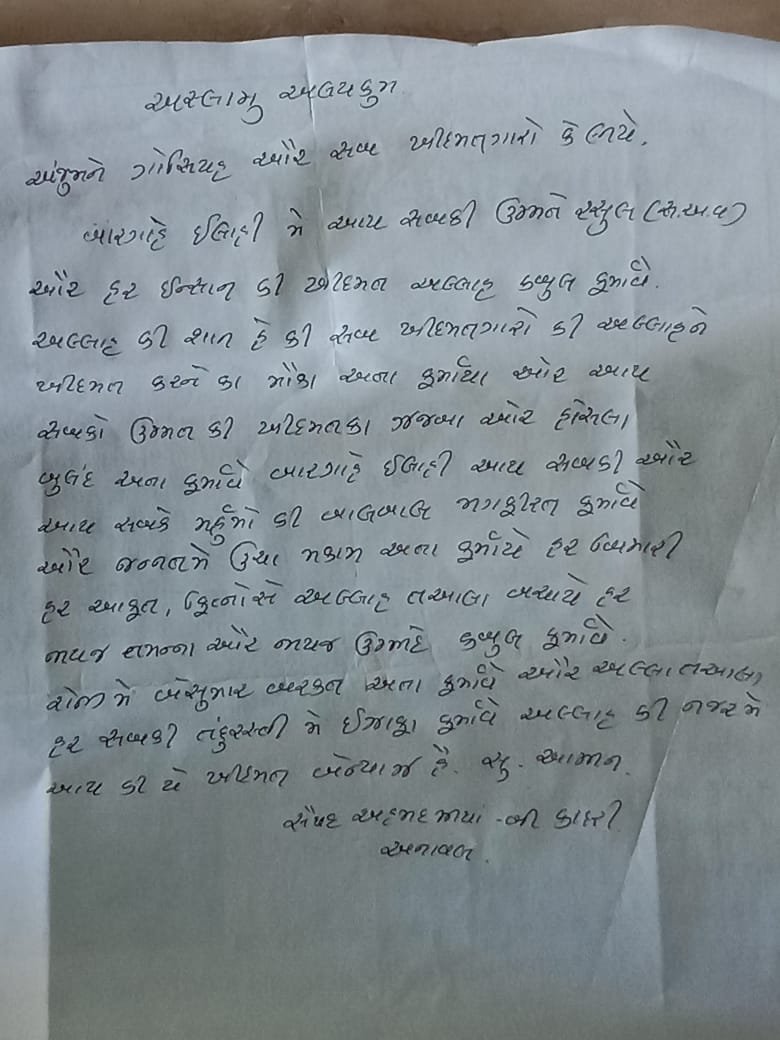 અસ્લામુ અલયકુમ
અંજુમને ગોસિયહ ઔર સબ ખીદમતગારો કે લીયે.
બારગાહે ઈલાહી મે આપ સબકી ઉમ્મતે રસુલ (સ.અ.વ)
ઔર હર ઈન્સાન કી ખીદમત અલ્લાહ કબુલ ફર્માવે.
અલ્લાહ કી શાન હે કી સબ ખીદમતગારો કી અલ્લાહને
ખીદમત કરને કા મોકા અતા ફર્માયા ઓર આપ
સબકો ઉમ્મત કી ખીદમતકા જજબા ઓર હોસલા
બુલંદ અતા ફર્માવે બારગાહે ઈલાહી આપ સબકી ઔર
આપ સબકે મર્હુમો કી બાલબાલ મગફીરત ફર્માવે
ઔર જન્નતમે ઉંચા મકામ અતા ફર્માયે હર બિમારી
હર આફત, ફિત્નોસે અલ્લાહ તઆલા બચાયે હર
જાયજ તમન્ના ઔર જાયજ ઉમ્મીદે કબુલ ફર્માવે.
રોજી મે બેસુમાર બરકત અતા ફર્માવે ઔર અલ્લા તઆલા
હર સબકી તંદુરસ્તી મે ઈજાફા ફર્માવે અલ્લાહ કી નજરમે
આપ કી યે ખીદમત બેન્યાજ હૈ. આમીન.
સૈયદ અહમદમીયાં કાદરી
અનાવલ.